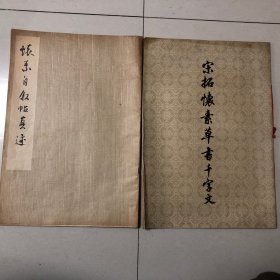 懷素自叙帖真迹
宋拓懷素草書千字文